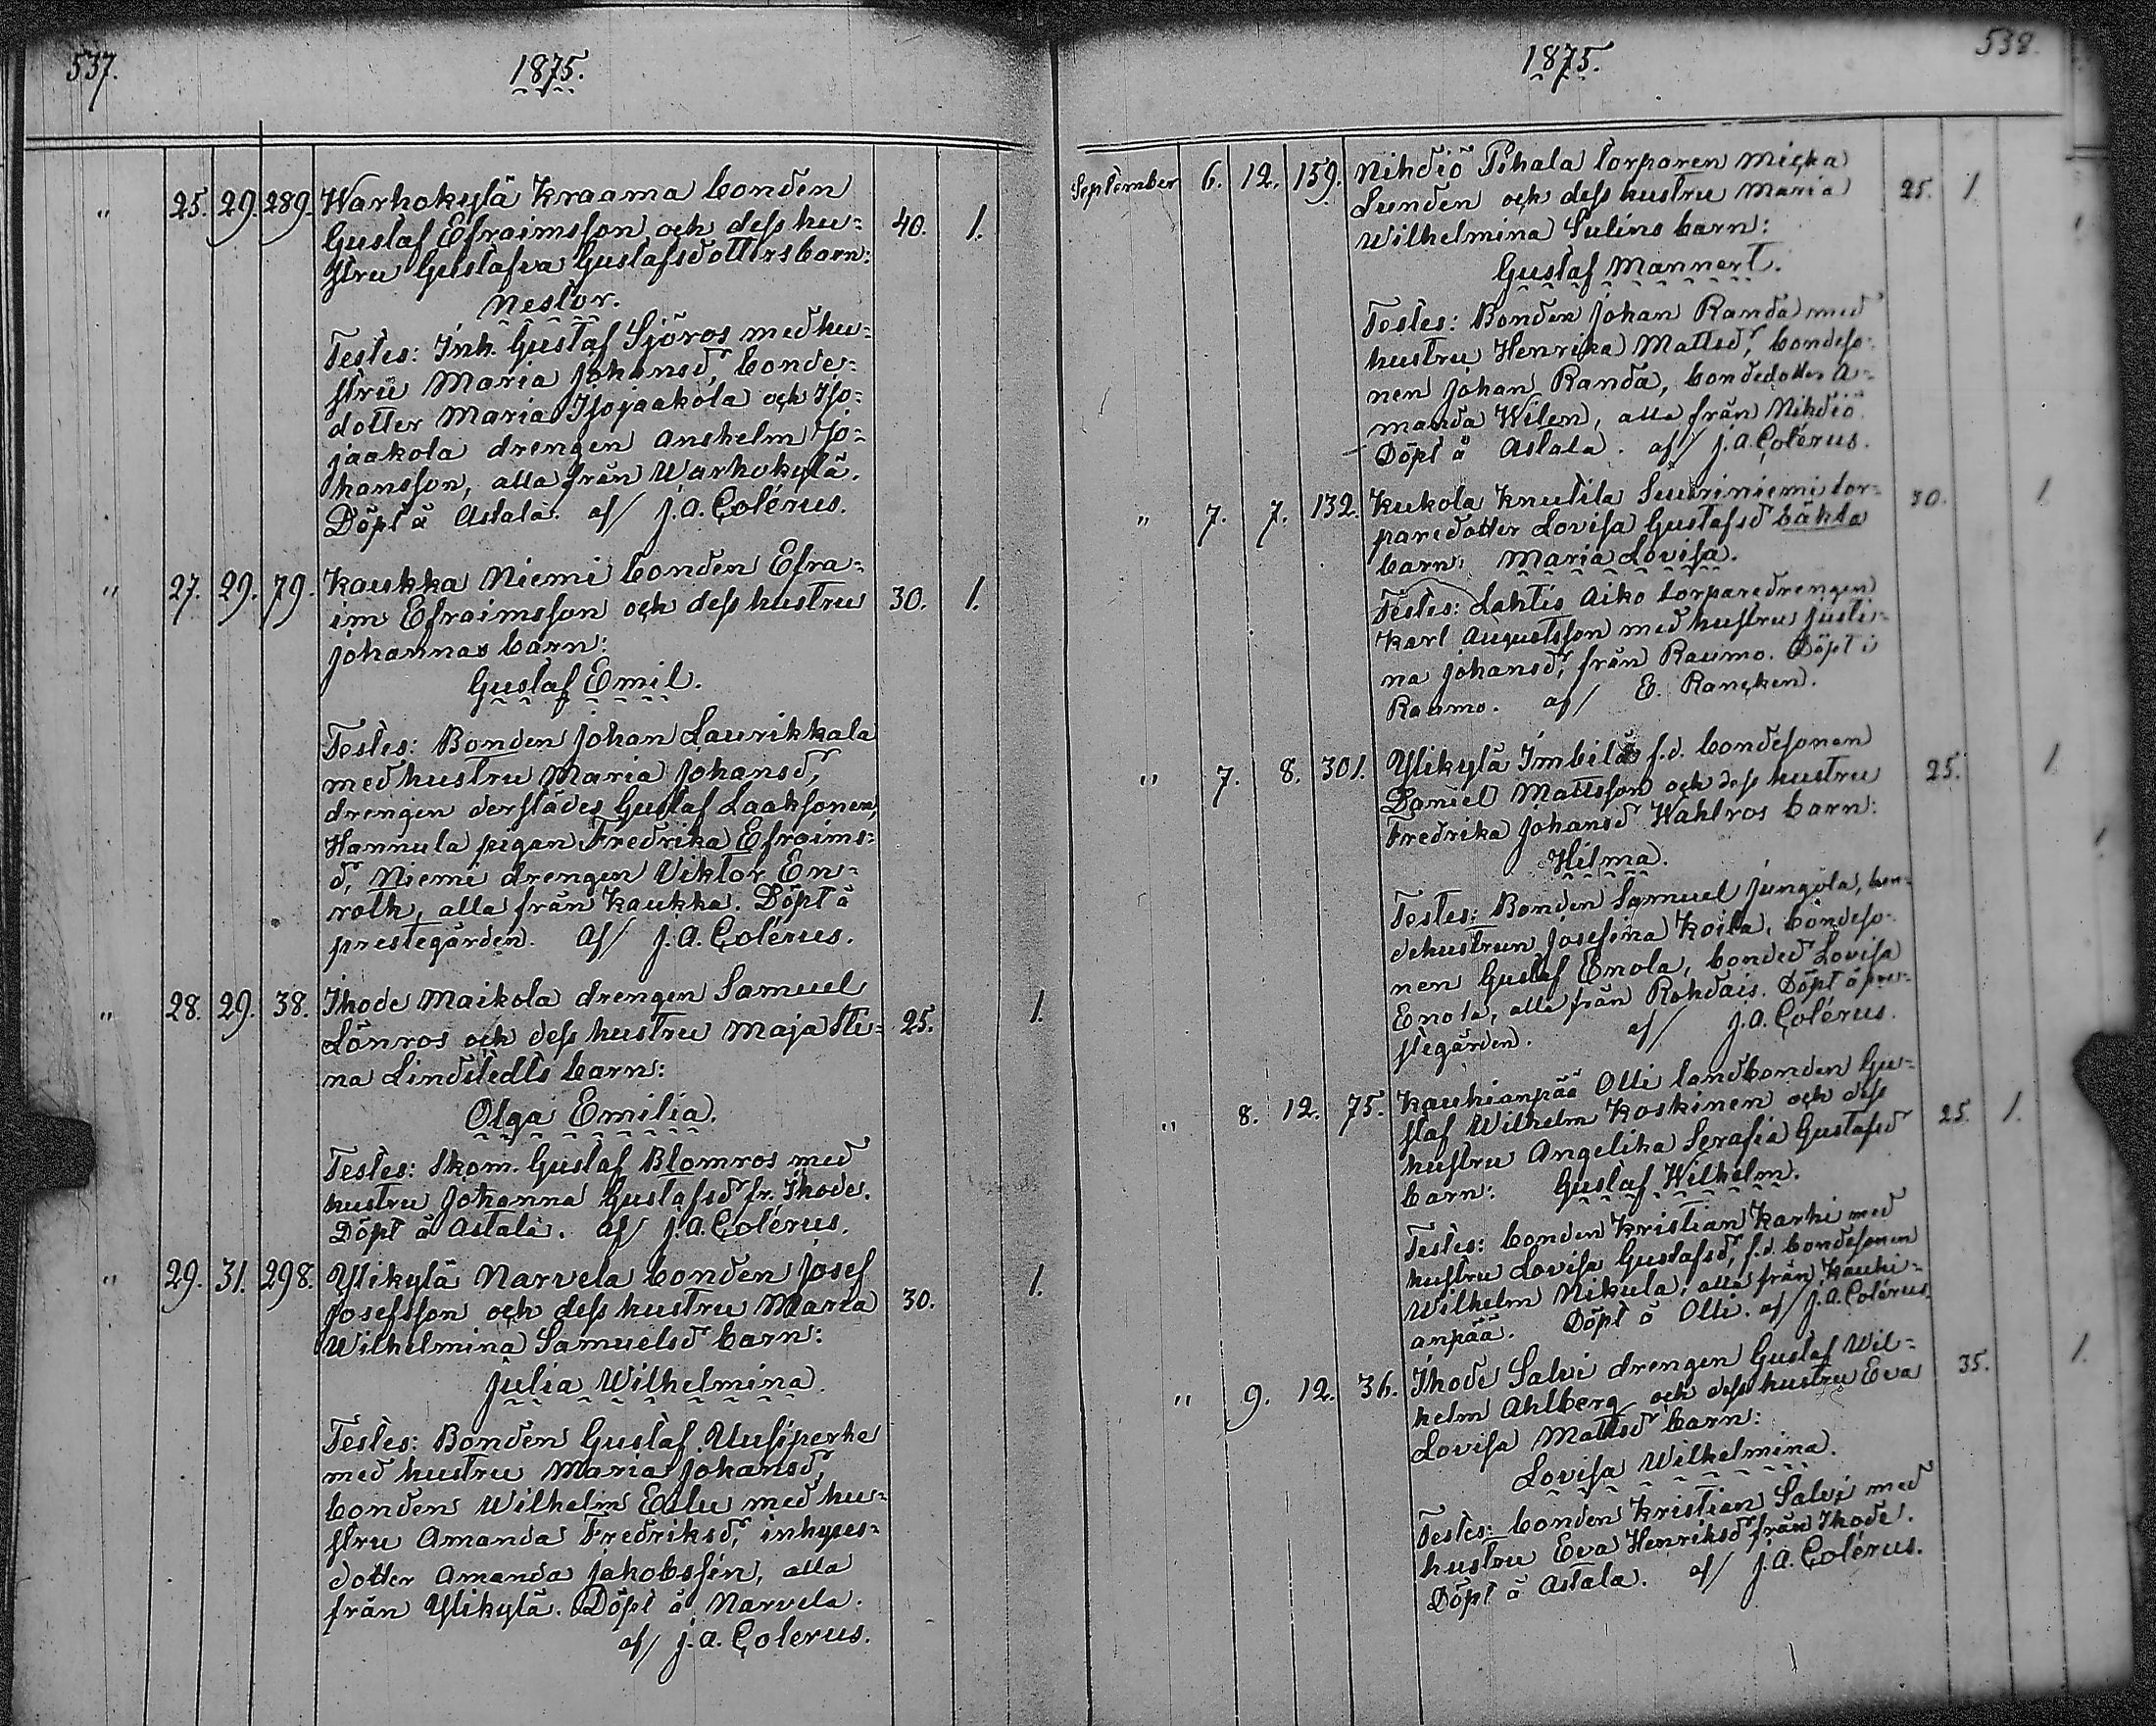 537.
1875.
" 25. 29. 289. Warhokylä Kraama bonden
Gustaf Efraimsson och dess hu- 40. 1.
stru Gustafva Gustafsdotters barn:
Nestor.
Testes: Inh. Gustaf Sjöros med hu-
stru Maria Johansd, bonde-
dotter Maria Isojaakola och Iso-
jaakola drengen Anshelm Jo-
hansson, alla från Warhokylä.
Döpt å Astala. af/ J. A. Colérus.
" 27. 29. 79. Kaukka Niemi bonden Efra-
im Efraimsson och dess hustru 30. 1.
Johannas barn:
Gustaf Emil.
Testes: Bonden Johan Laurikkala
med hustru Maria Johansd,
drengen derstädes Gustaf Laaksonen,
Hannula pigan Fredrika Efraims-
d, Niemi drengen Viktor En-
roth, alla från Kaukka. Döpt å
prestegården. af/ J. A. Colérus.
" 28. 29. 38. Ihode Maikola drengen Samuel
Lönros och dess hustru Maja Sti- 25. 1.
na Lindstedts barn:
Olga Emilia.
Testes: Skom. Gustaf Blomros med
hustru Johanna Gustafsd fr. Ihode.
Döpt å Astala. af/ J. A. Colérus.
" 29. 31. 298. Ylikylä Narvela bonden Josef
Josefsson och dess hustru Maria 30. 1.
Wilhelmina Samuelsd barn:
Julia Wilhelmina.
Testes: Bonden Gustaf Uusiperhe
med hustru Maria Johansd,
bonden Wilhelm Eslu med hu-
stru Amanda Fredriksd, inhyses-
dotter Amanda Jakobssin, alla
från Ylikylä. Döpt å Narvela.
af/ J. A. Colerus.
538.
1875.
September 6. 12. 159. Nihdiö Pihala torparen Micka
Lunden och dess hustru Maria 25. 1
Wilhelmina Sulins barn:
Gustaf Mannert.
Testes: Bonden Johan Randa med
hustru Henrika Mattsd, bondeso-
nen Johan Randa, bondedotter A-
manda Wilen, alla från Nihdiö
Döpt å Astala. af/ J. A. Colérus.
" 7. 7. 132. Kukola Knutila Suuriniemi tor- 30. 1
paredotter Lovisa Gustafsd oäkta
barn: Maria Lovisa.
Testes: Lahtis Aiko torparedrengen
Karl Augustsson med hustru Justi-
na Johansd, från Raumo. Döpt i
Raumo. af/ E. Rancken.
" 7. 8. 301. Ylikylä Imbilä f.d. bondesonen
Daniel Mattsson och dess hustru 25. 1
Fredrika Johansd Wahlros barn:
Hilma.
Testes: Bonden Samuel Jungola, bon-
dehustrun Josefina Koila, bondeso-
nen Gustaf Enola, bonded Lovisa
Enola, alla från Rohdais. Döpt å pre-
stegården. af/ J. A. Colérus.
" 8. 12. 75. Kauhianpää Olli landbonden Gu-
staf Wilhelm Koskinen och dess
hustru Angelika Serafia Gustafsd 25. 1.
barn: Gustaf Wilhelm.
Testes: bonden Kristian Karhi med
hustru Lovisa Gustafsd, f.d. bondesonen
Wilhelm Nikula, alla från Kauhi-
anpää. Döpt å Olli. af/ J. A. Colérus.
" 9. 12. 36. Ihode Salvi drengen Gustaf Wil-
helm Ahlberg och dess hustru Eva 35. 1.
Lovisa Mattsd barn:
Lovisa Wilhelmina.
Testes: bonden Kristian Salvi med
hustru Eva Henriksd från Ihode.
Döpt å Astala. af/ J. A. Colérus.